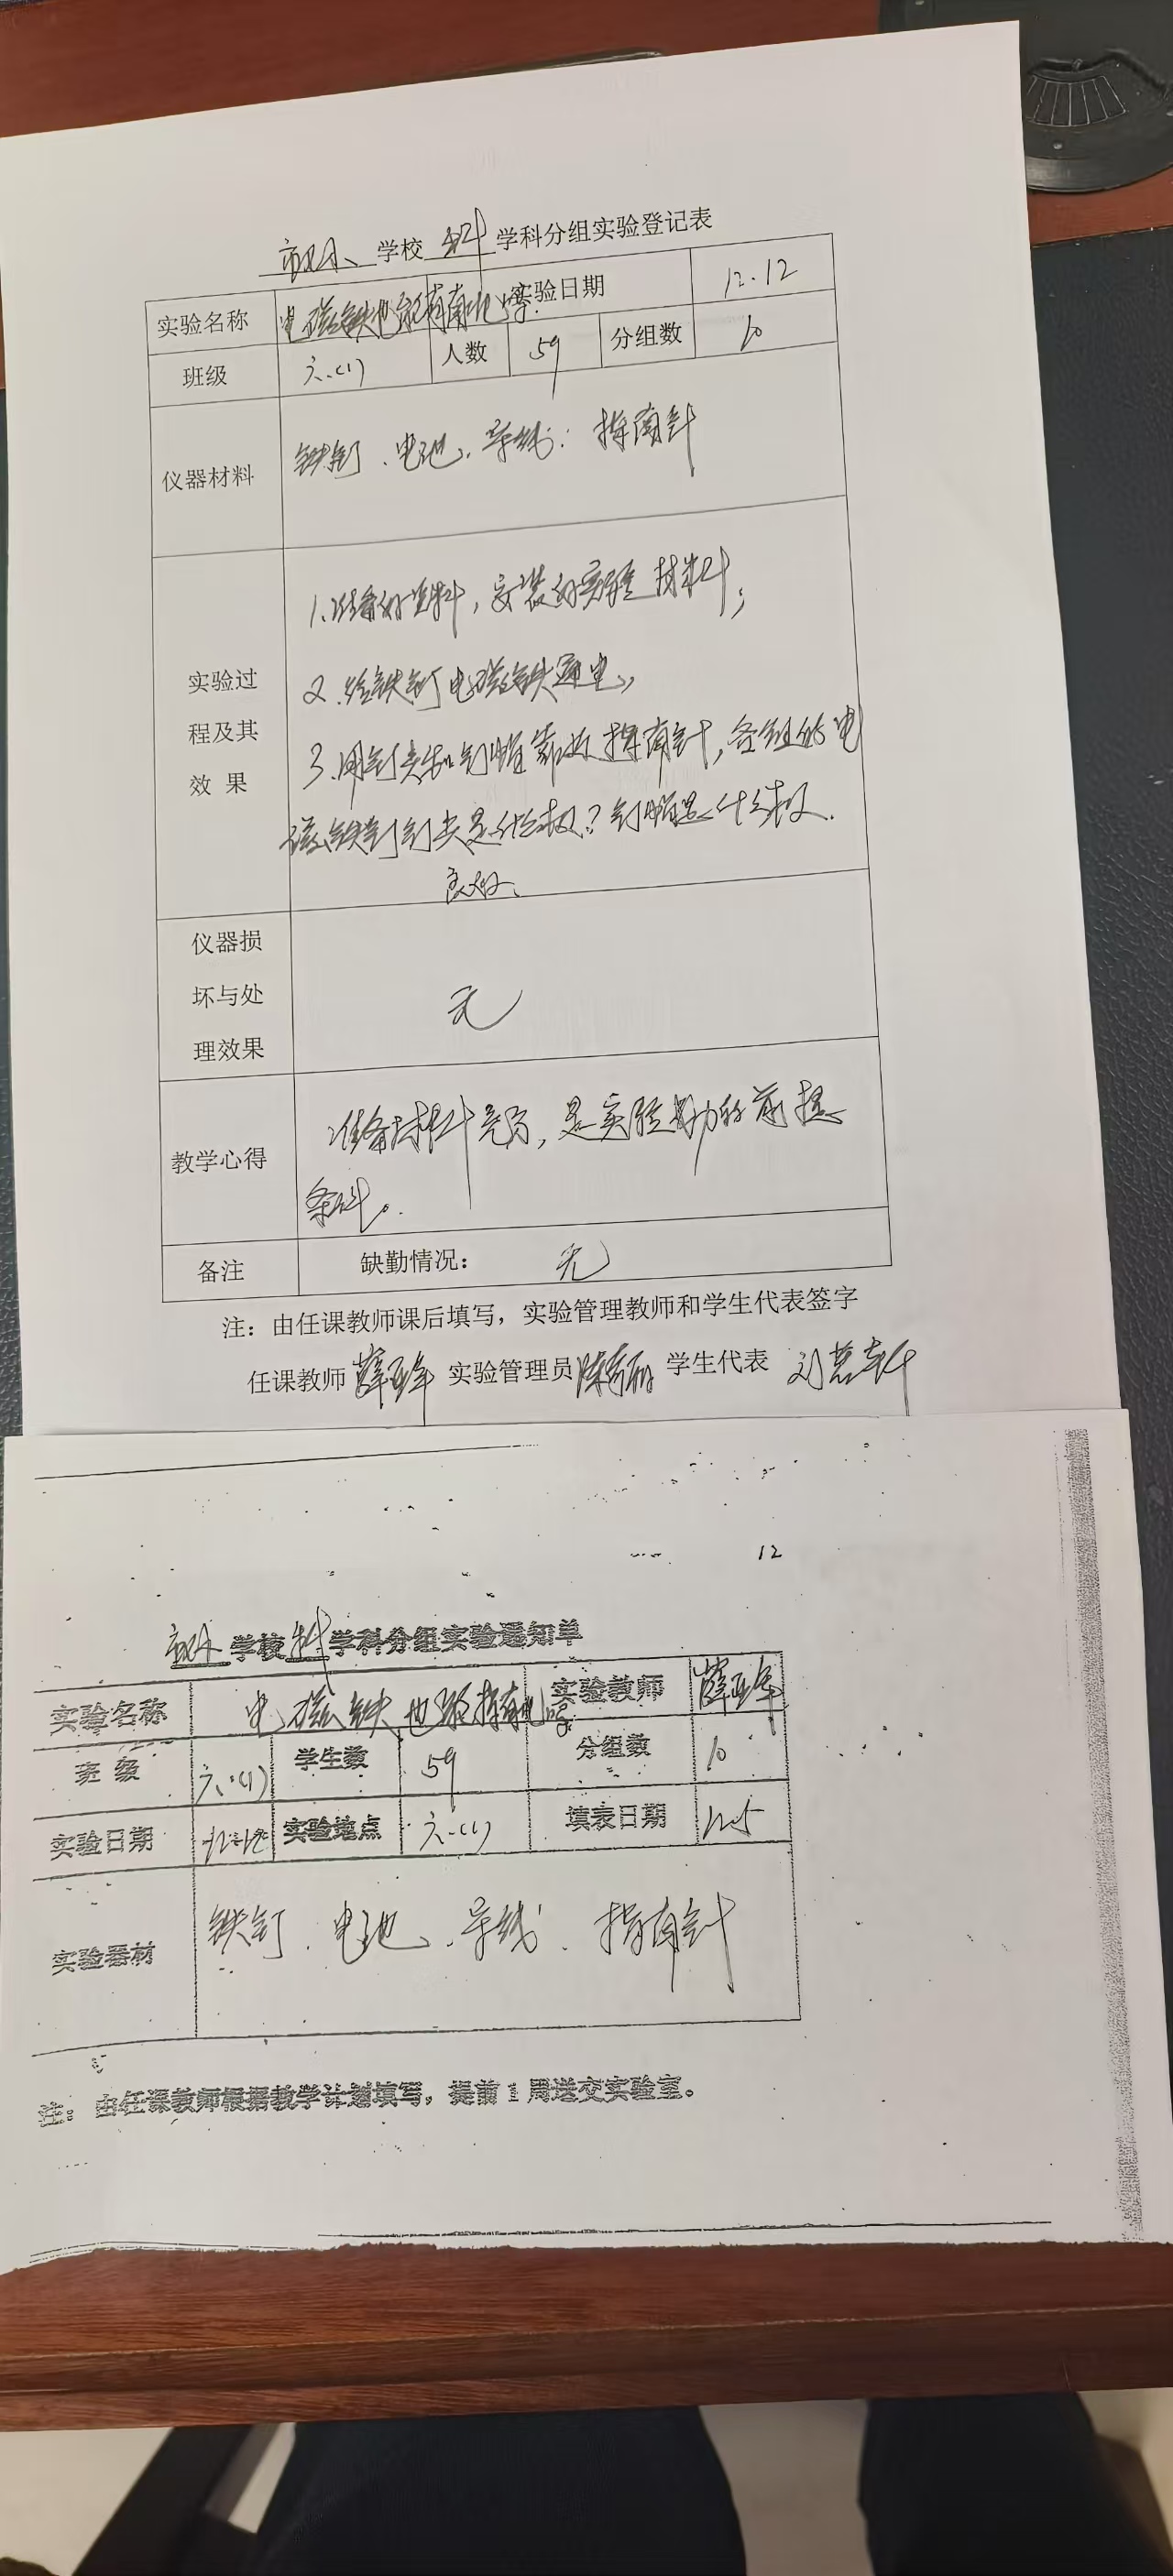 学校 科 学科分组实验登记表
实验名称 电磁铁也能指南北吗? 实验日期 12.12
班级 六.(1) 人数 59 分组数 10
仪器材料 铁钉、电池、导线、指南针
1.准备好材料,安装好实验材料;
实验过 2.给铁钉电磁铁通电,
程及其 3.用钉尖和钉帽靠近指南针,各组的电
效 果 磁铁钉钉尖是什么极?钉帽是什么极.
良好.
仪器损
坏与处 无
理效果
教学心得 准备材料充分,是实验成功的前提
条件。
备注 缺勤情况: 无
注:由任课教师课后填写,实验管理教师和学生代表签字
任课教师 薛亚军 实验管理员 学生代表
12
学校 科 学科分组实验通知单
实验名称 电磁铁也能指南北吗? 实验教师 薛亚军
班 级 六.(1) 学生数 59 分组数 10
实验日期 12.12 实验地点 六.(1) 填表日期 12.5
实验器材 铁钉、电池、导线、指南针
注: 由任课教师根据教学计划填写,提前1周送交实验室。